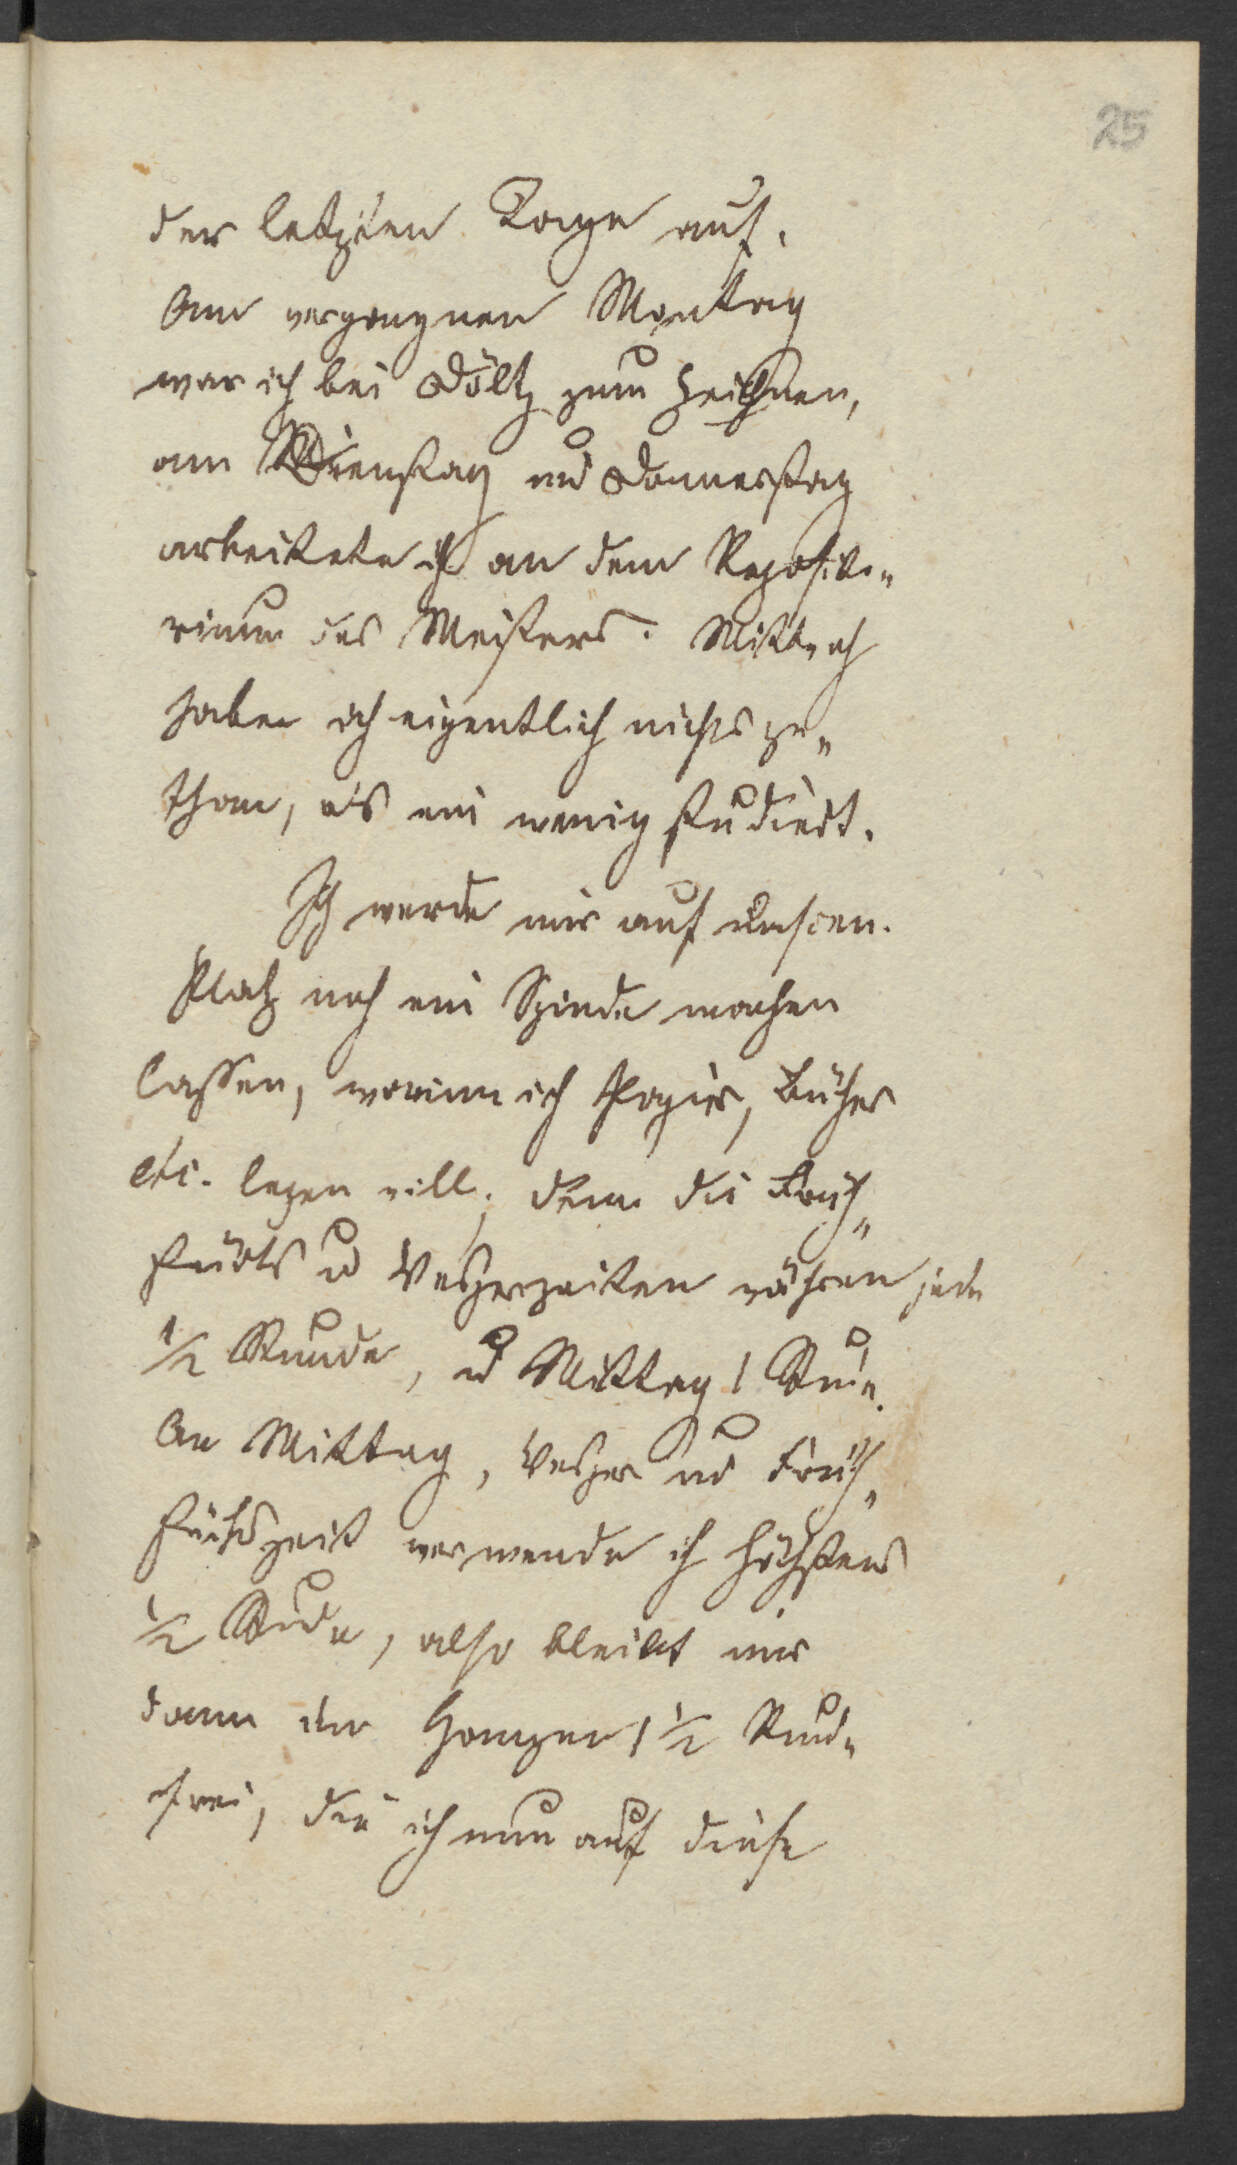 25
der letzten Tage auf.
Am vergangnen Montag
war ich bei Döltz zum Zeichnen,
am Dienstag und Donnerstag
arbeitete ich an dem Reposito„
rium des Meisters. Mittwoch
habe ich eigentlich nichts ge„
than, als ein wenig studiert.
Ich werde mir auf unsren
Platz noch ein Spinde machen
lassen, worinn ich Papier, Bücher
etc. legen will; denn die Früh„
stücks u Vesperzeiten währen jede
1/2 Stunde, u Mittag 1 Stunde.
An Mittag, Vesper und Früh„
stückszeit verwende ich höchstens
1/2 Stunde, also bleibt mir
dann im Ganzen 1 1/2 Stunde
frei, die ich nun auf diese